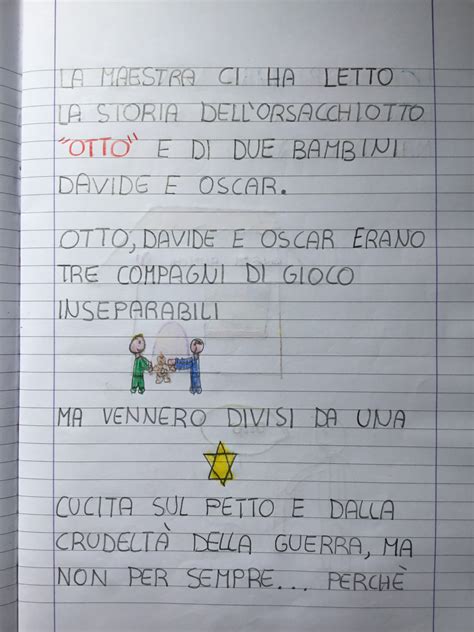 LA MAESTRA CI HA LETTO
LA STORIA DELL'ORSACCHIOTTO
"OTTO" E DI DUE BAMBINI
DAVIDE E OSCAR.
OTTO, DAVIDE E OSCAR ERANO
TRE COMPAGNI DI GIOCO
INSEPARABILI
MA VENNERO DIVISI DA UNA
CUCITA SUL PETTO E DALLA
CRUDELTÀ DELLA GUERRA, MA
NON PER SEMPRE... PERCHÈ